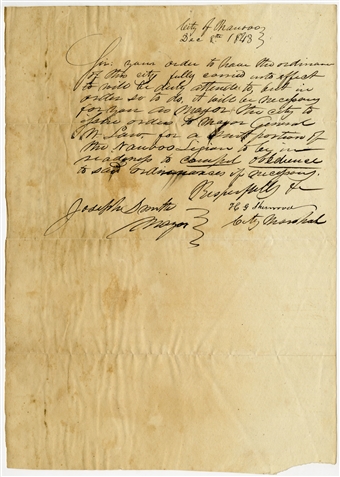 City of Nauvoo
Dec 8th 1843
Sir. your order to have the ordinan
of this city fully carried into effect
to will be duly attended to, but in
order so to do, it will be necessary
for you as Mayor of the city to
issue orders to Major General
W. Law for a portion of
the Nauvoo Legion to be in
readiness to compel obedience
to said Ordinances if necessary.
Respectfully &c
H G Sherwood
City Marshal
Joseph Smith
Mayor